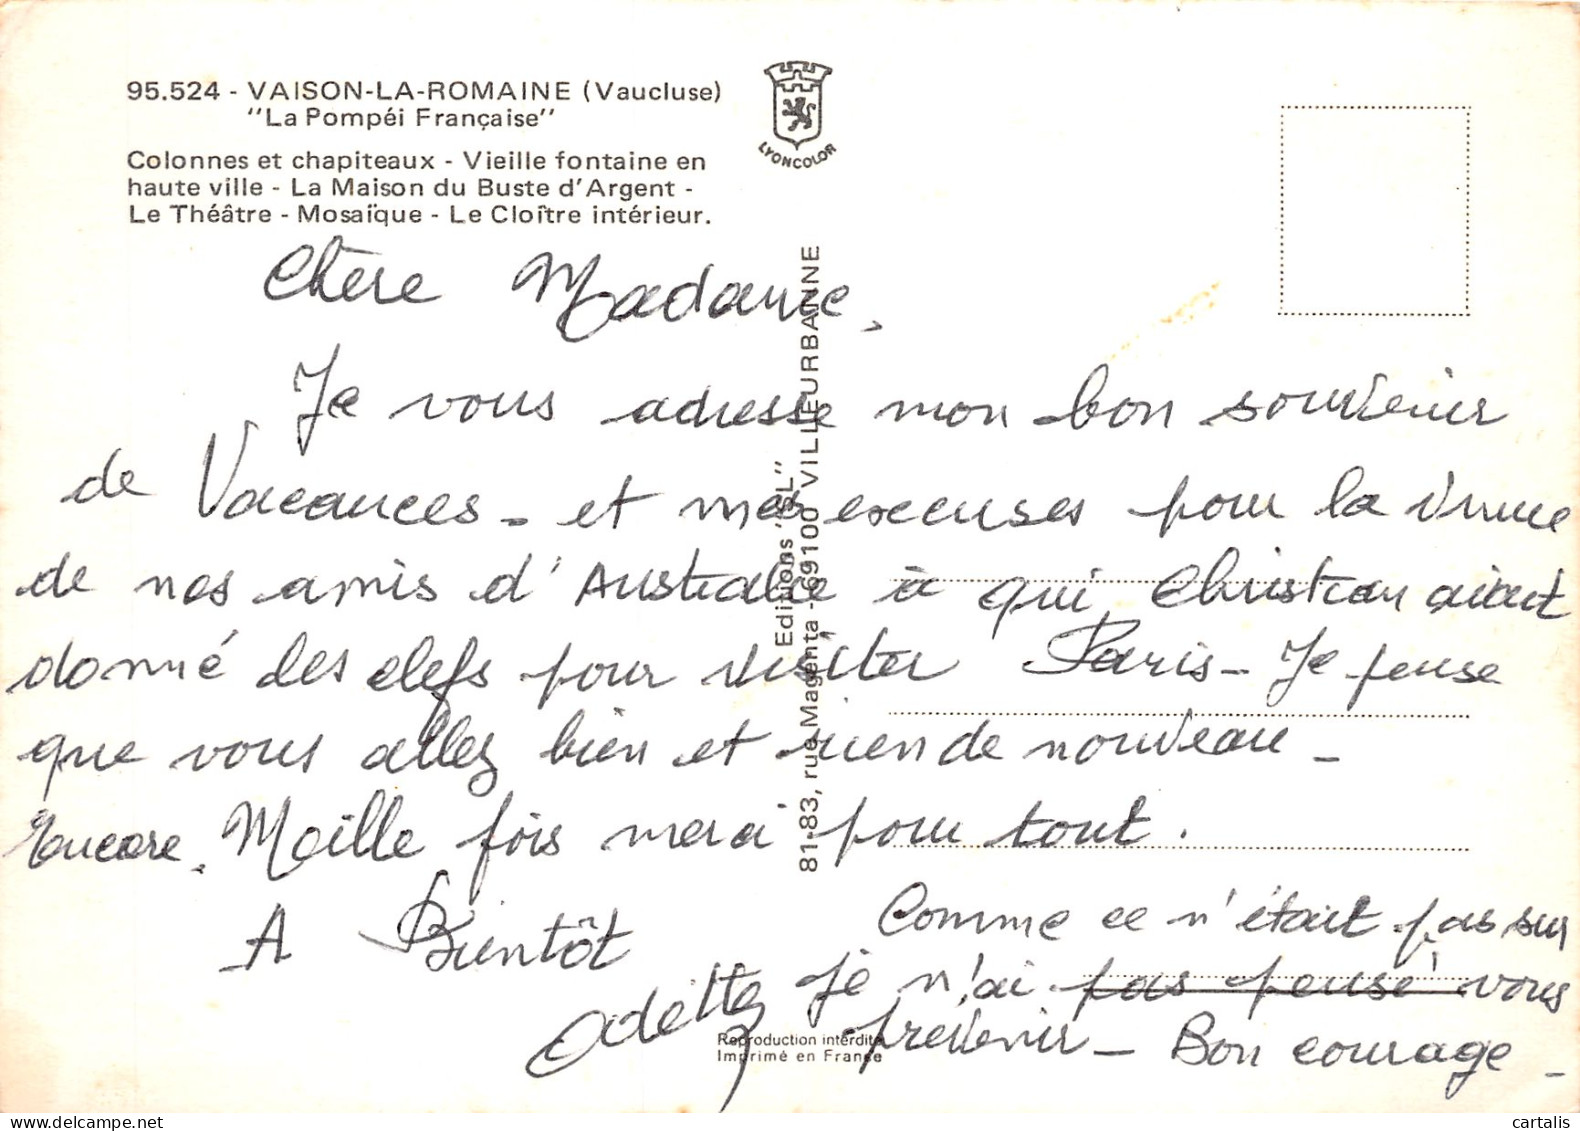 95.524 - VAISON-LA-ROMAINE (Vaucluse)
"La Pompéi Française"
Colonnes et chapiteaux - Vieille fontaine en
haute ville - La Maison du Buste d'Argent -
Le Théâtre - Mosaïque - Le Cloître intérieur.
LYONCOLOR
Chère Madame,
Je vous adresse mon bon souvenir
de Vacances - et mes excuses pour la venue
de nos amis d'Australie à qui Christian avait
donné des clefs pour visiter Paris - Je pense
que vous allez bien et rien de nouveau -
Encore. Meille fois merci pour tout.
A Bientôt
Odette
Comme ce n'était pas sur
je n'ai pas pensé vous
prévenir - Bon courage -
Editions "SL"
81-83, rue Magenta - 69100 VILLEURBANNE
Reproduction interdite
Imprimé en France
cartalis
www.delcampe.net